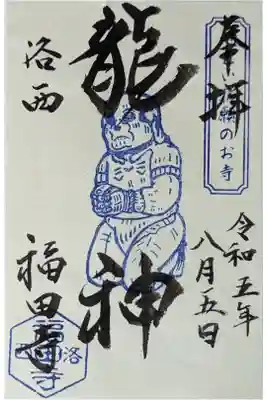 奉拝
のお寺
令和五年
八月五日
龍神
洛西
福田寺